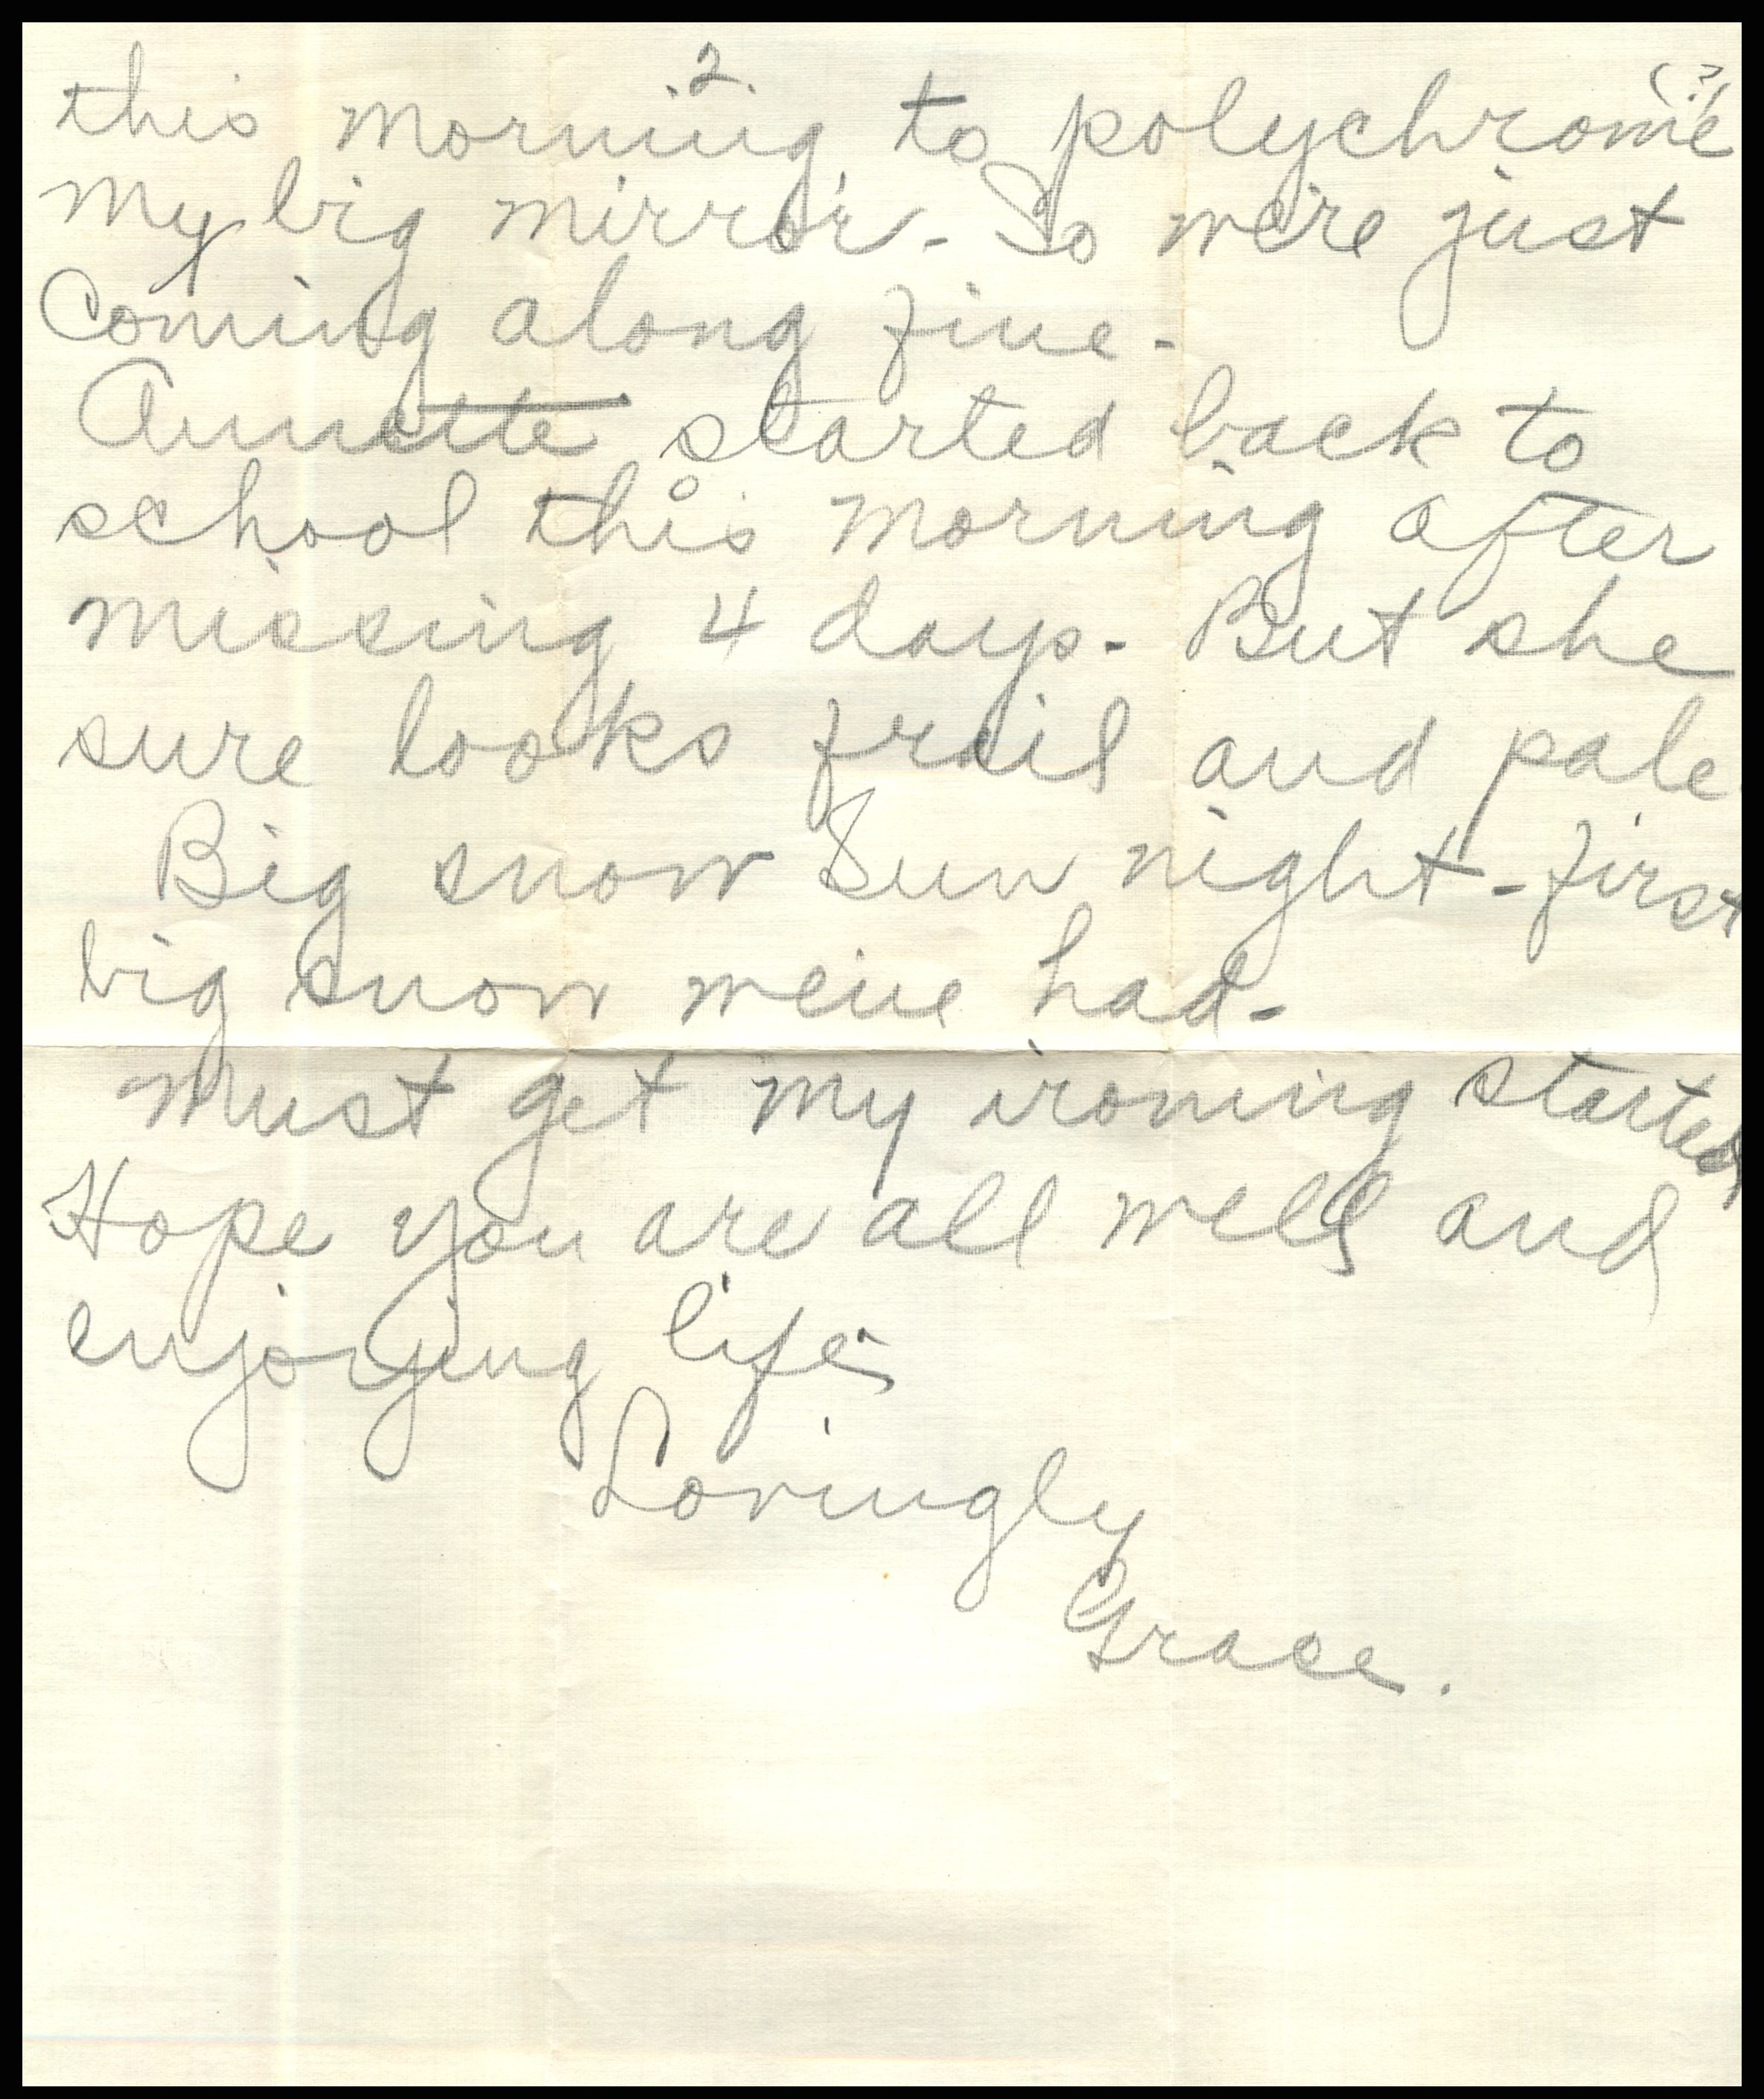 .2.
this morning, to polychrome (?)
my big mirror. So we're just
coming along fine.
Annette started back to
school this morning after
missing 4 days. But she
sure looks frail and pale
Big snow Sun night - first
big snow weve had.
must get my ironing started
Hope you are all well and
enjoying life.
Lovingly
Grace.